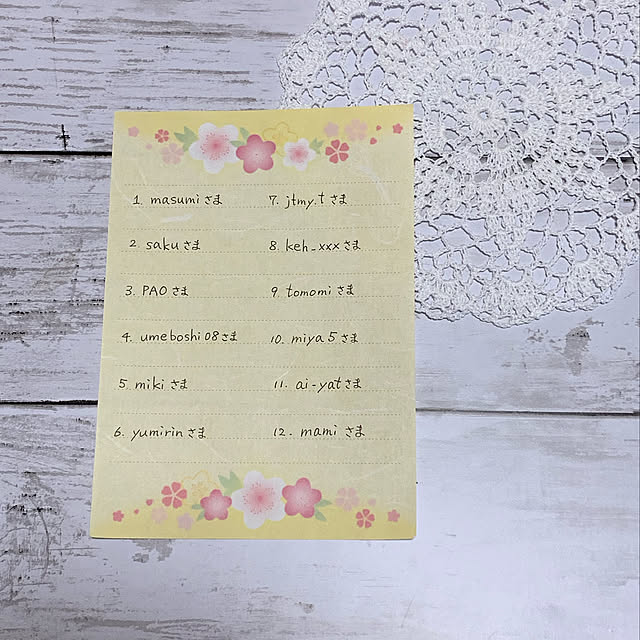 1. masumi さま
2. saku さま
3. PAO さま
4. umeboshi 08 さま
5. miki さま
6. yumirin さま
7. jtmy.t さま
8. keh_xxx さま
9. tomomi さま
10. miya 5 さま
11. ai-yat さま
12. mami さま